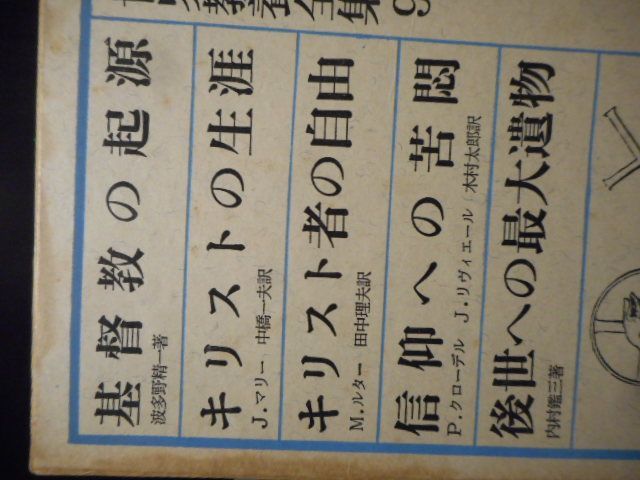 教養全集 9
基督教の起源
波多野精一著
キリストの生涯
J.マリー 中橋一夫訳
キリスト者の自由
M.ルター 田中理夫訳
信仰への苦悶
P.クローデル J.リヴィエール 木村太郎訳
後世への最大遺物
内村鑑三著